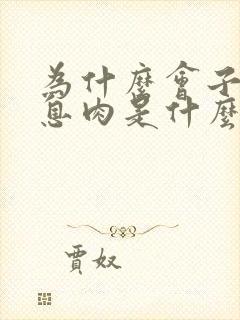 為什麼會子
息肉是什麼
賈奴